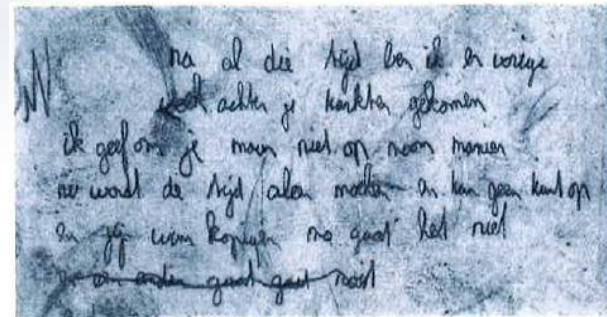 na al die tijd ben ik er vorige
week achter je karakter gekomen
ik geef om je maar niet op manier
nu wordt de tijd alen kan geen kant op
en jij kopijen no gaat het niet
en ander gaat gaat nooit